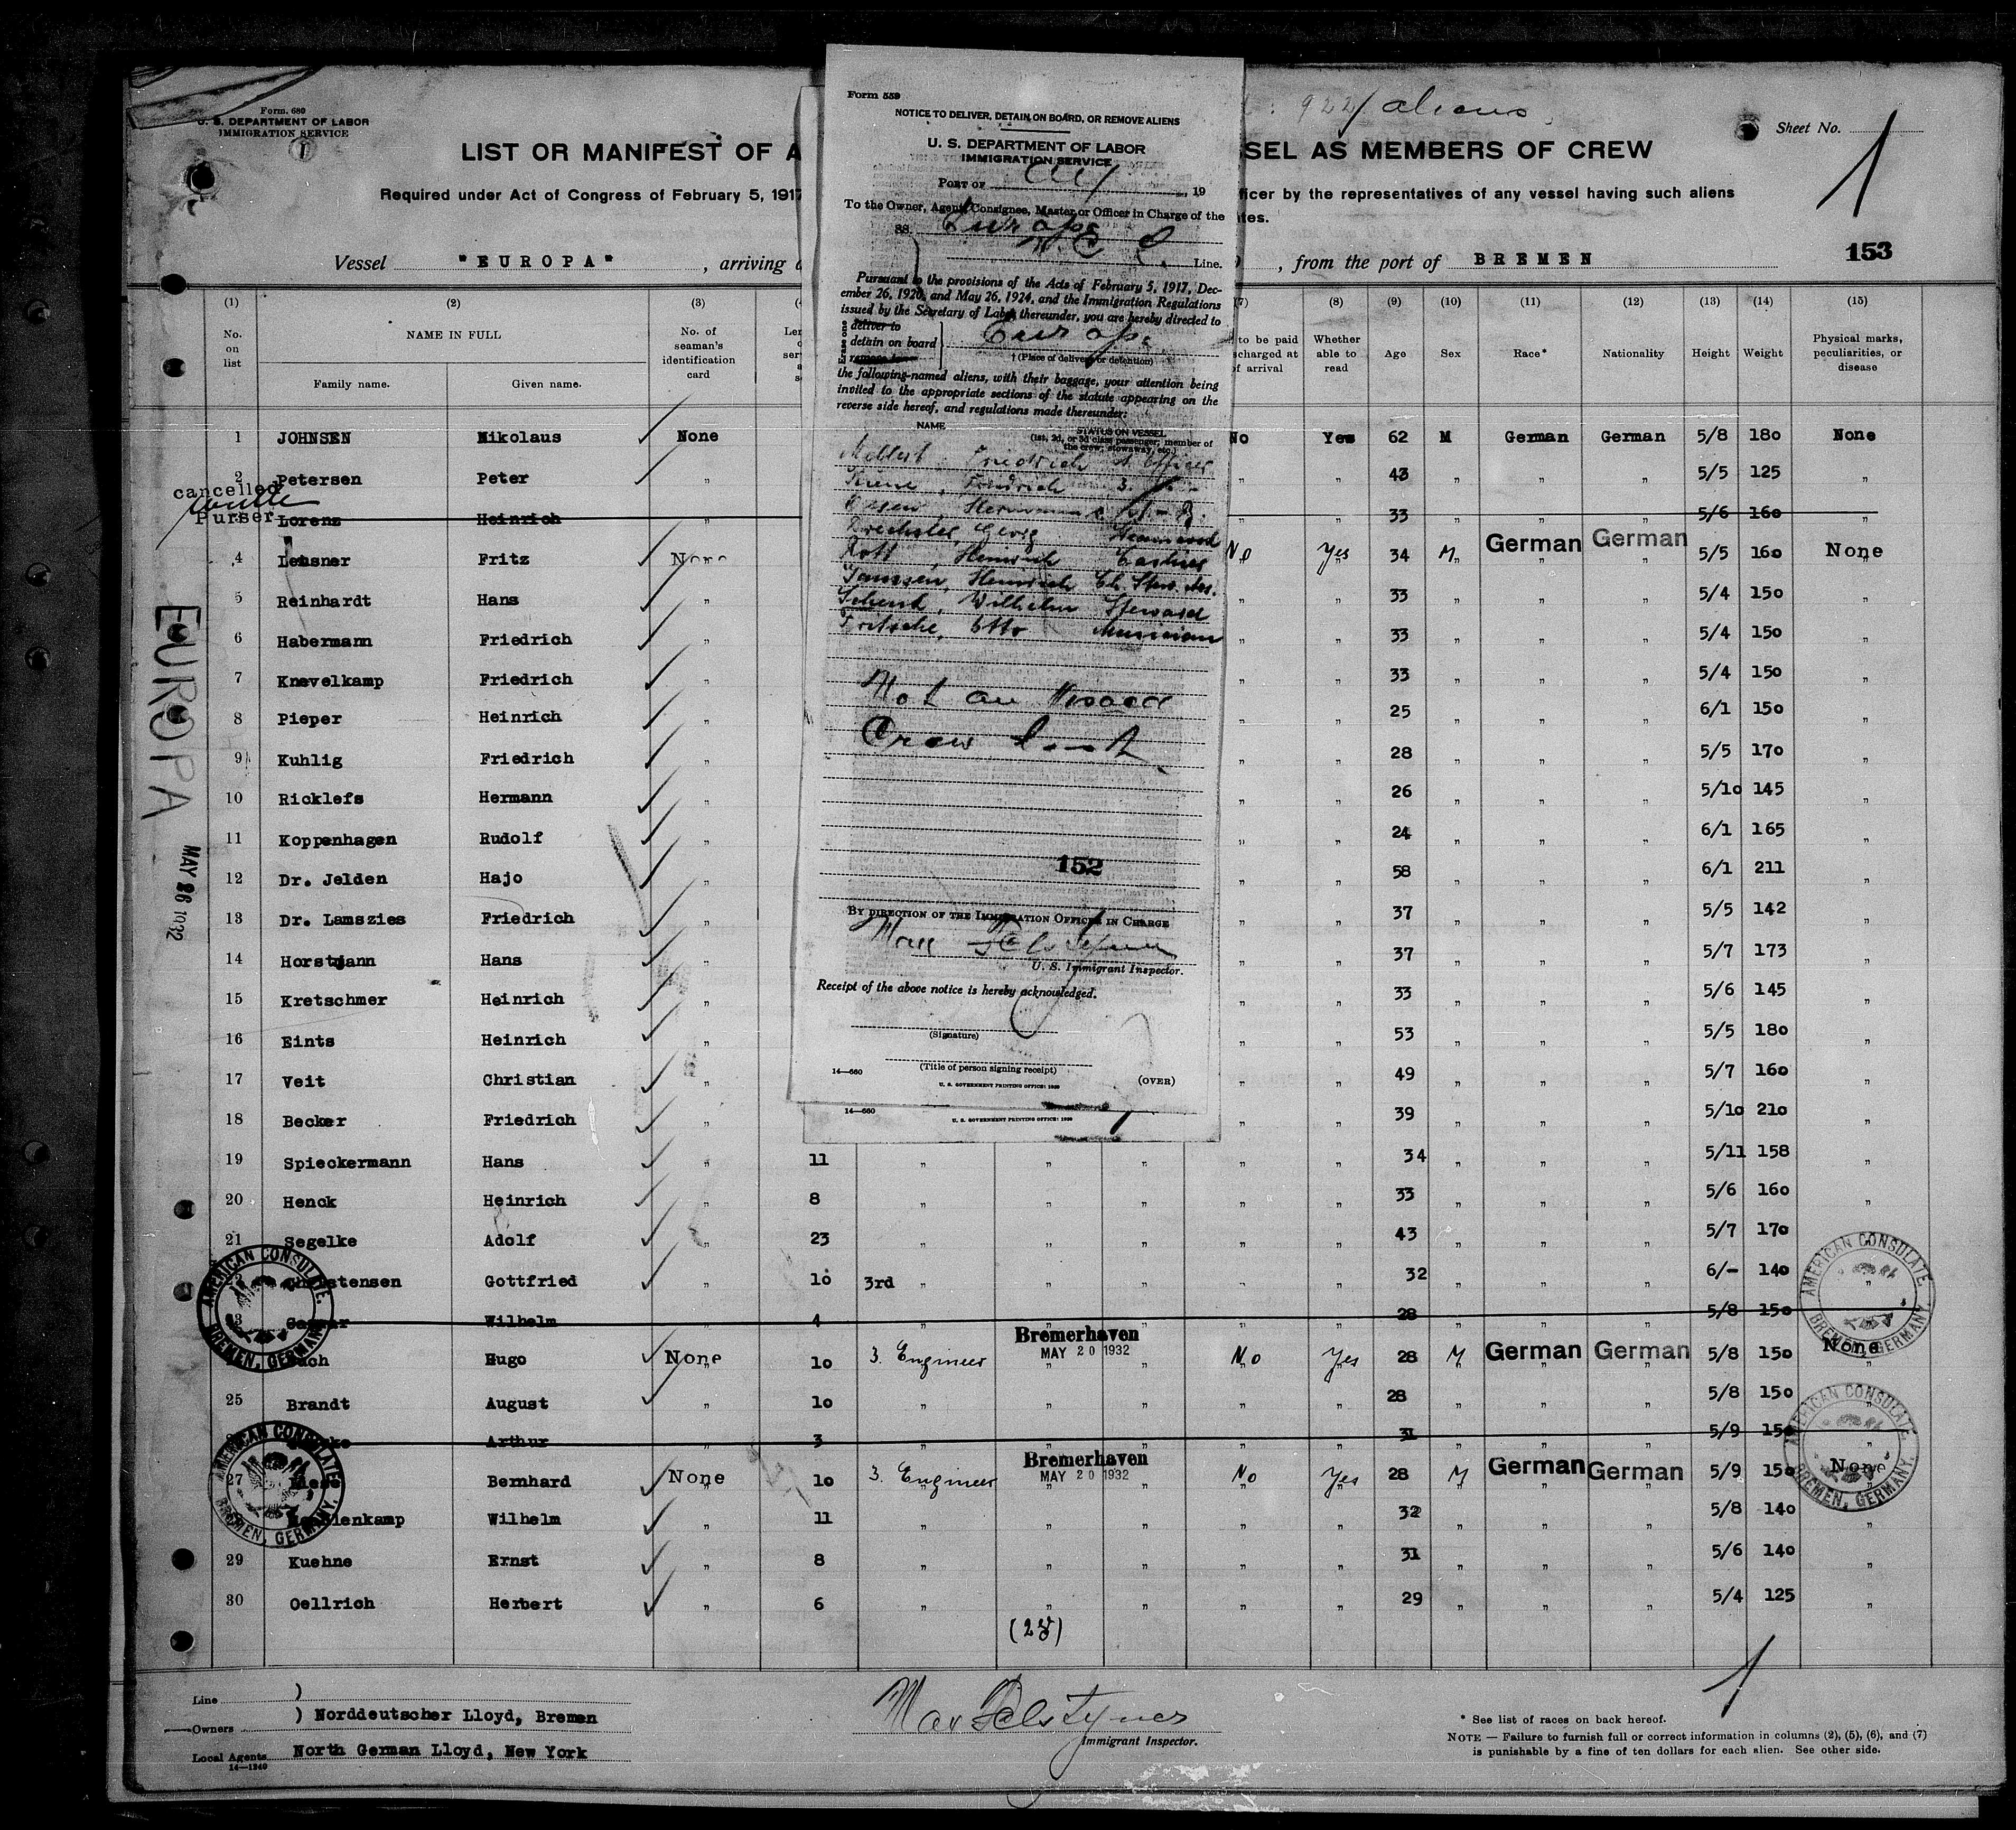 Form. 680
U. S. DEPARTMENT OF LABOR
IMMIGRATION SERVICE
922 aliens
Sheet No. 1
LIST OR MANIFEST OF A
SEL AS MEMBERS OF CREW
Required under Act of Congress of February 5, 1917
ficer by the representatives of any vessel having such aliens
tes.
153
Vessel "EUROPA" , arriving
, from the port of BREMEN
(1) (2) (3) (7) (8) (9) (10) (11) (12) (13) (14) (15)
No. on list
NAME IN FULL
Family name. Given name.
No. of seaman's identification card
to be paid
charged at
of arrival
Whether able to read
Age Sex Race* Nationality Height Weight
Physical marks, peculiarities, or disease
1 JOHNSEN Nikolaus None No Yes 62 M German German 5/8 180 None
2 Petersen Peter " " " 43 " " " 5/5 125 "
cancelled
Purser
Lorenz Heinrich " " 33 " " " 5/6 160 "
4 Leusner Fritz None No Yes 34 M German German 5/5 160 None
5 Reinhardt Hans " " " 33 " " " 5/4 150 "
6 Habermann Friedrich " " " 33 " " " 5/4 150 "
7 Knevelkamp Friedrich " " " 33 " " " 5/4 150 "
8 Pieper Heinrich " " " 25 " " " 6/1 150 "
9 Kuhlig Friedrich " " " 28 " " " 5/5 170 "
10 Ricklefs Hermann " " " 26 " " " 5/10 145 "
11 Koppenhagen Rudolf " " " 24 " " " 6/1 165 "
12 Dr. Jelden Hajo " " " 58 " " " 6/1 211 "
13 Dr. Lamszies Friedrich " " " 37 " " " 5/5 142 "
14 Horstmann Hans " " " 37 " " " 5/7 173 "
15 Kretschmer Heinrich " " " 33 " " " 5/6 145 "
16 Eints Heinrich " " " 53 " " " 5/5 180 "
17 Veit Christian " " " 49 " " " 5/7 160 "
18 Becker Friedrich " " " 39 " " " 5/10 210 "
19 Spieckermann Hans " 11 " " " " " 34 " " " 5/11 158 "
20 Henck Heinrich " 8 " " " " " 33 " " " 5/6 160 "
21 Segelke Adolf " 23 " " " " " 43 " " " 5/7 170 "
Gottfried " 10 3rd " " " " " 32 " " " 6/- 140 "
Wilhelm 4 " " " " " 28 " " " 5/8 150
Hugo None 10 3. Engineer Bremerhaven MAY 20 1932 No Yes 28 M German German 5/8 150 None
25 Brandt August " 10 " " " " " 28 " " " 5/8 150
Arthur 3 " " " " " 31 " " " 5/9 150 "
27 Bernhard None 10 3. Engineer Bremerhaven MAY 20 1932 No Yes 28 M German German 5/9 150 None
Wilhelm " 11 " " " " " 32 " " " 5/8 140 "
29 Kuehne Ernst " 8 " " " " " 31 " " " 5/6 140 "
30 Oellrich Herbert " 6 " " " " " 29 " " " 5/4 125 "
EUROPA
MAY 26 1932
AMERICAN CONSULATE. BREMEN, GERMANY.
AMERICAN CONSULATE. BREMEN, GERMANY.
AMERICAN CONSULATE. BREMEN, GERMANY.
AMERICAN CONSULATE. BREMEN, GERMANY.
Line )
Owners ) Norddeutscher Lloyd, Bremen
Local Agents North German Lloyd, New York
14—1240
Immigrant Inspector.
* See list of races on back hereof.
NOTE — Failure to furnish full or correct information in columns (2), (5), (6), and (7)
is punishable by a fine of ten dollars for each alien. See other side.
Form 559
NOTICE TO DELIVER, DETAIN ON BOARD, OR REMOVE ALIENS
U. S. DEPARTMENT OF LABOR
IMMIGRATION SERVICE
PORT OF , 19
To the Owner, Agent, Consignee, Master, or Officer in Charge of the
SS. Europa
Line.
Pursuant to the provisions of the Acts of February 5, 1917, Dec-
ember 26, 1920, and May 26, 1924, and the Immigration Regulations
issued by the Secretary of Labor thereunder, you are hereby directed to
Erase one
deliver to
detain on board Europa
remove to
† (Place of delivery or detention)
the following-named aliens, with their baggage, your attention being
invited to the appropriate sections of the statute appearing on the
reverse side hereof, and regulations made thereunder:
NAME
STATUS ON VESSEL
(1st, 2d, or 3d class passenger; member of
the crew; stowaway, etc.)
Friedrich Officer
Friedrich 3.
Georg
Rott, Heinrich
Janssen, Heinrich Ch. Stew.
Schenk, Wilhelm Steward
Fritsche, Otto Musician
Not on Visaed
Crew List
152
BY DIRECTION OF THE IMMIGRATION OFFICER IN CHARGE
U. S. Immigrant Inspector.
Receipt of the above notice is hereby acknowledged.
(Signature)
(Title of person signing receipt)
14—660
U. S. GOVERNMENT PRINTING OFFICE:
(OVER)
14—660
U. S. GOVERNMENT PRINTING OFFICE: